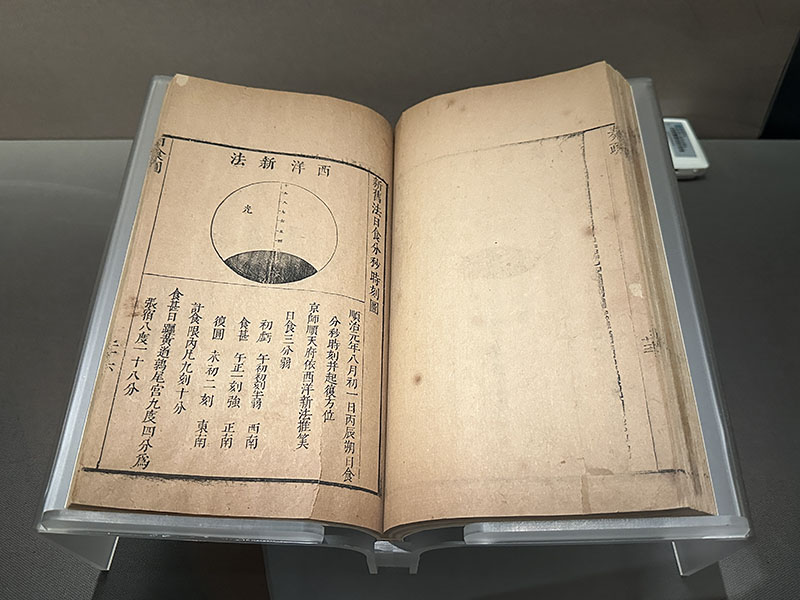 新舊法日食分秒時刻圖
西洋新法
光
順治元年八月初一日丙辰朔日食
分秒時刻并起復方位
京師順天府依西洋新法推筭
日食三分弱
初虧 午初初刻半弱 西南
食甚 午正一刻強 正南
復圓 未初二刻 東南
計食限內凡九刻十分
食甚日躔黃道鶉尾宮九度四分為
張宿八度一十八分
日食圖
二十六